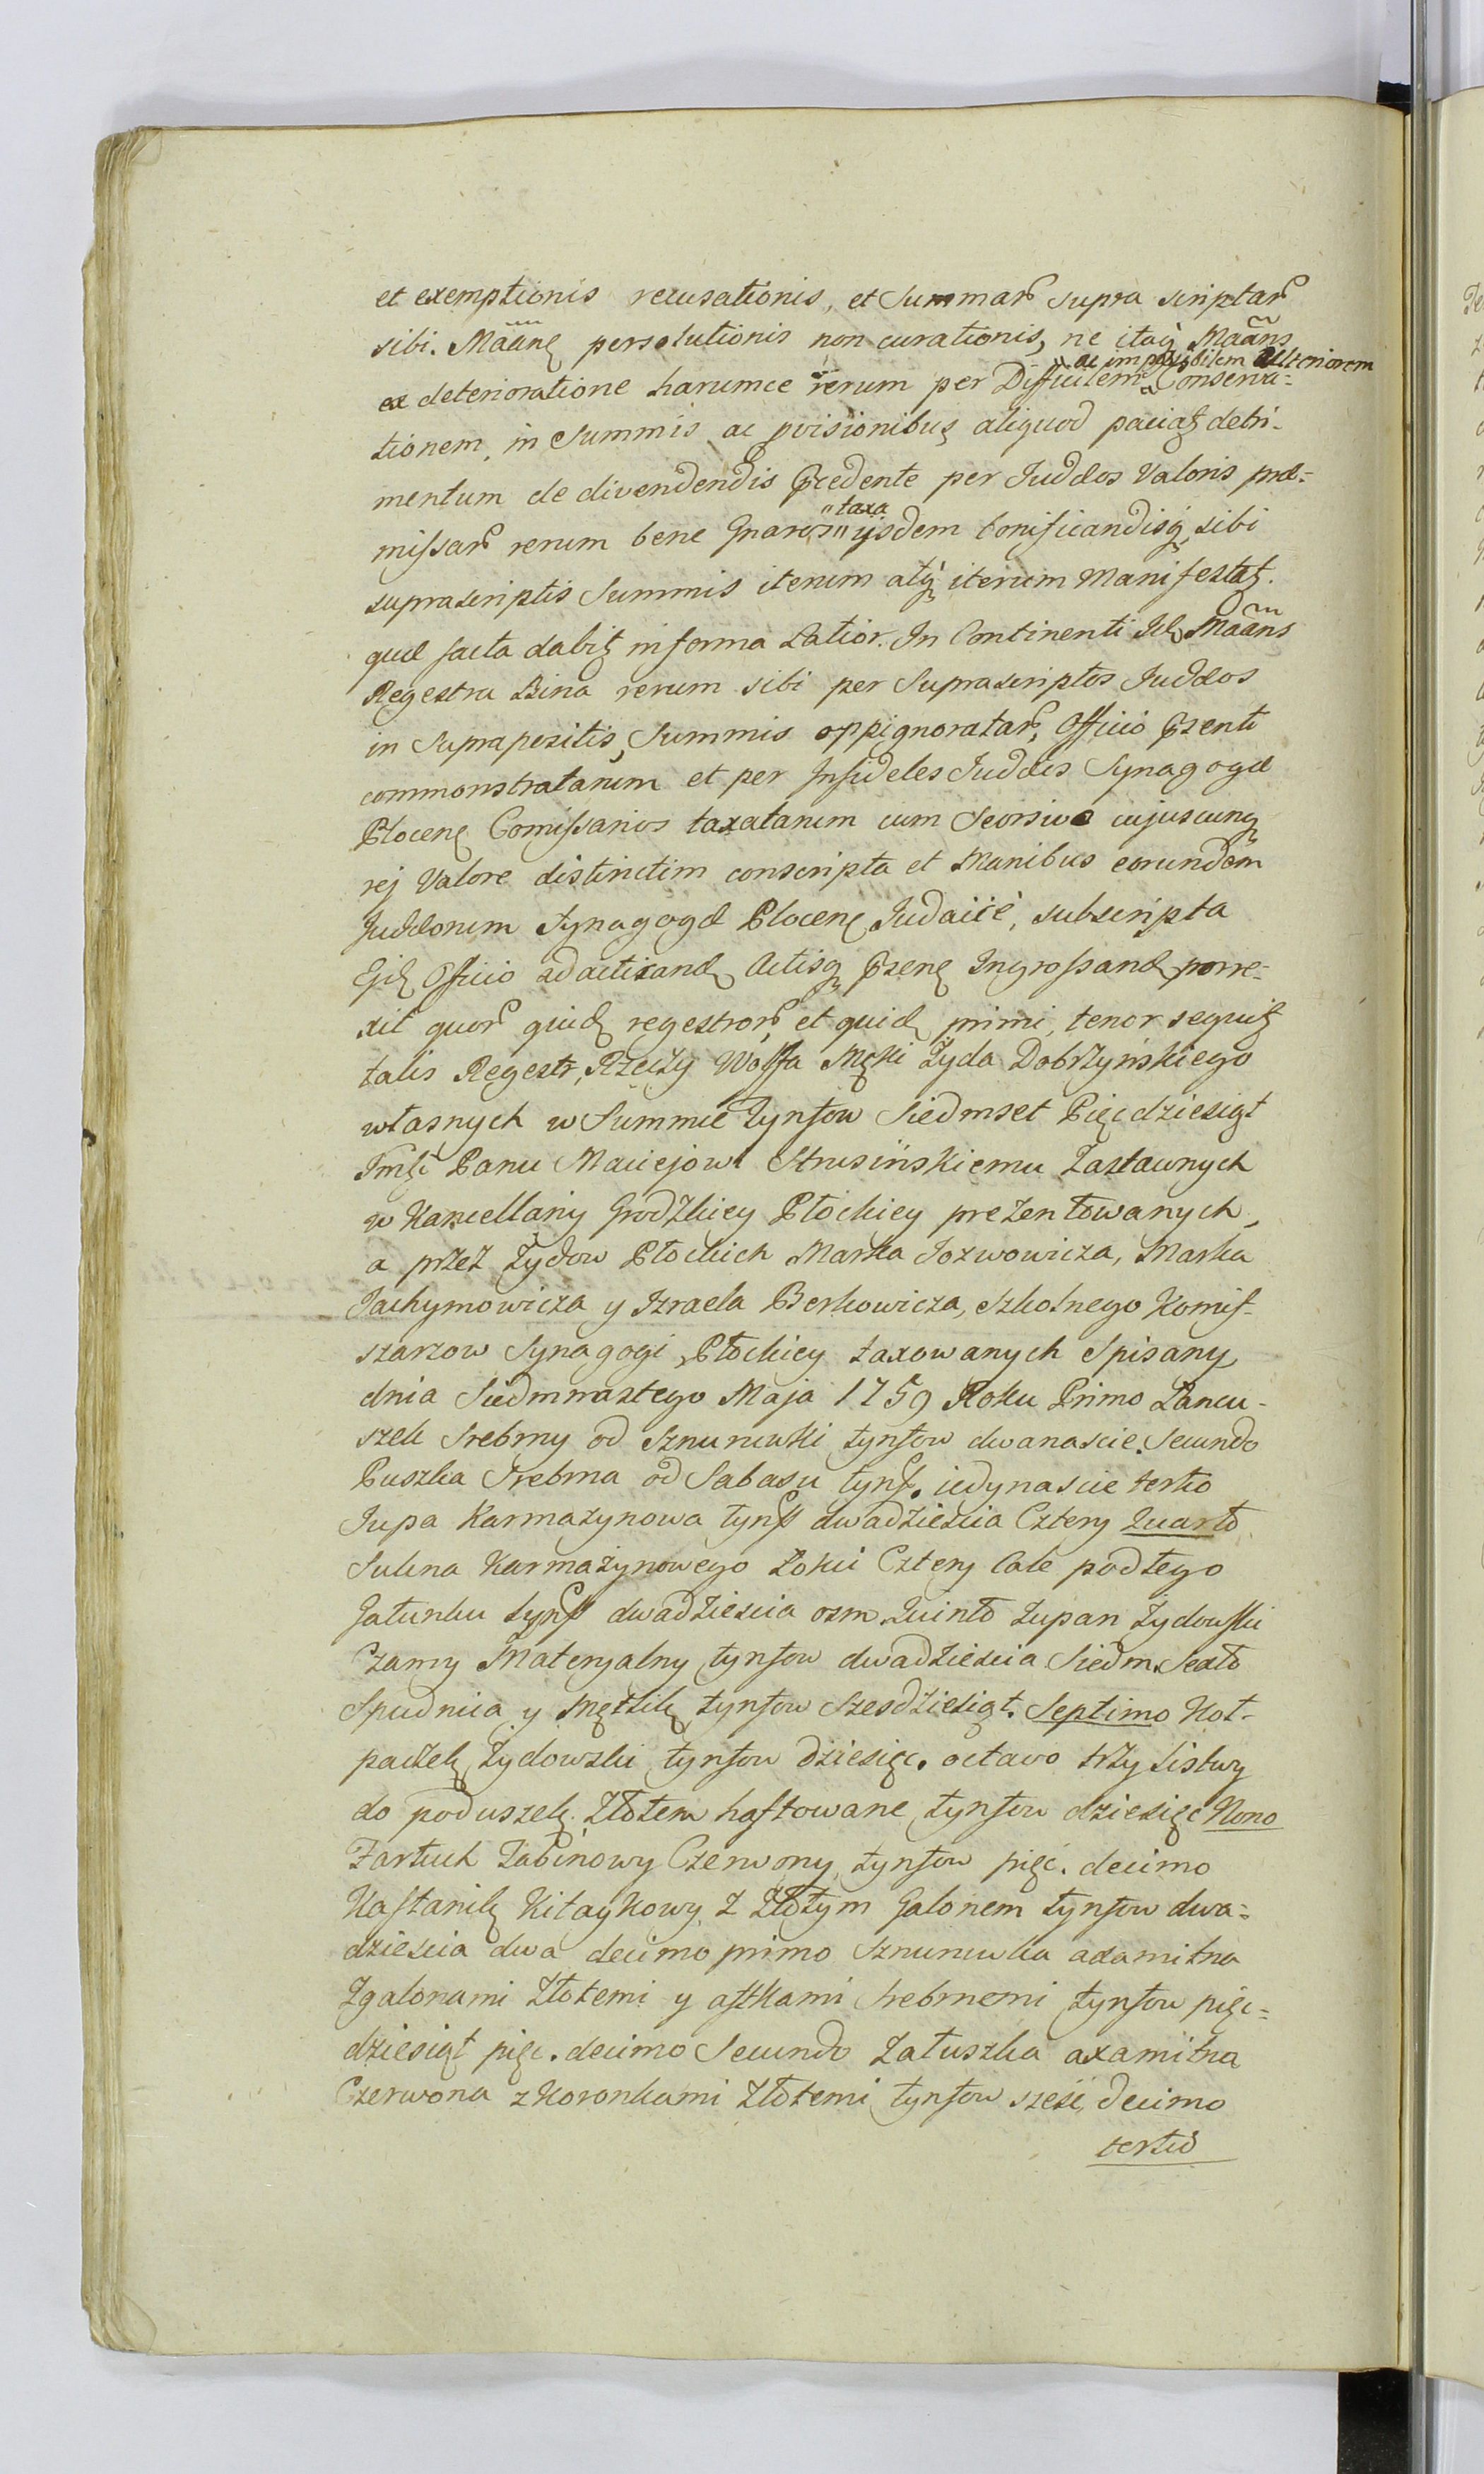 et exemptionis recusationis, et Summar supra scriptar
sibi. Maãne persolutionis non curationis, ne itaq Maãns
ac impossibilem Ulteriorem
ex deterioratione harumce rerum per Difficilem Conserva=
tionem, in Summis ac provisionibus aliquod paciat detri-
mentum de divendendis Prcedente per Judæos Valoris præ=
taxa
missar rerum bene Gnaros ijsdem bonificandisq sibi
suprascriptis Summis iterum atq iterum Manifestat.
quæ facta dabit in forma Latior. In Continenti Id Maãns
Regestra Bina rerum sibi per Suprascriptos Judæos
in Suprapositis Summis oppignoratar, Officio Pzenti
commonstratarum et per Infideles Judæos Synagogæ
Plocen Comissarios taxatarum cum Seorsivo cujuscunq
rej Valore distinctim conscripta et Manibus eorundem
Judæorum Synagogæ Plocen Judaicè, subscripta
Ejd Officio ad acticand Actisq Pzen Ingrossand porre=
xit quor quid regestror, et quid primi, tenor sequit
talis Regestr, Rzeczy Wolfa Męki Zyda Dobrzyńskiego
własnych w Summie Tynfow Siedmset Pięcdziesiąt
Jmsci Panu Maciejowi Strusińskiemu Zastawnych
w Kancellaryi Grodzkiey Płockiey prezentowanych,
a przez Zydow Płockich Marka Jozwowicza, Marka
Jachymowicza y Izraela Berkowicza, Szkolnego Komis-
szarzow Synagogi Płockiey taxowanych Spisany
dnia Siedmnastego Maja 1759 Roku Primo Lancu-
szek Srebrny od Sznurowki tynfow dwanascie. Secundo
Puszka Srebrna od Sabasu tynf. iedynascie tertio
Jupa Karmazynowa tynf dwadziescia Cztery Quarto
Sukna Karmazynowego Łokci Cztery Cale podłego
Gatunku tynf dwadziescia osm. Quinto Zupan Zydowski
Czarny Materyalny tynfow dwadziescia Siedm. Sexto
Spudnica y Mętlik tynfow Szesdziesiąt. Septimo Koł-
paczek Zydowski tynfow dziesięc. octavo trzy listwy
do poduszek Złotem haftowane tynfow dziesięc Nono
Fartuch Łabinowy Czerwony tynfow pięć. decimo
Kaftanik Kitaykowy z Złotym Galonem tynfow dwa=
dziescia dwa decimo primo Sznurowka axamitna
Zgalonami Złotemi y aftkami Srebrnemi tynfow pięc=
dziesiąt pięc. decimo Secundo Załuszka axamitna
Czerwona z Koronkami Złotemi tynfow sześć decimo
tertio